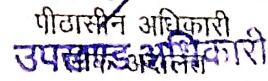 पीठासीन अधिकारी
उपखण्ड अधिकारी